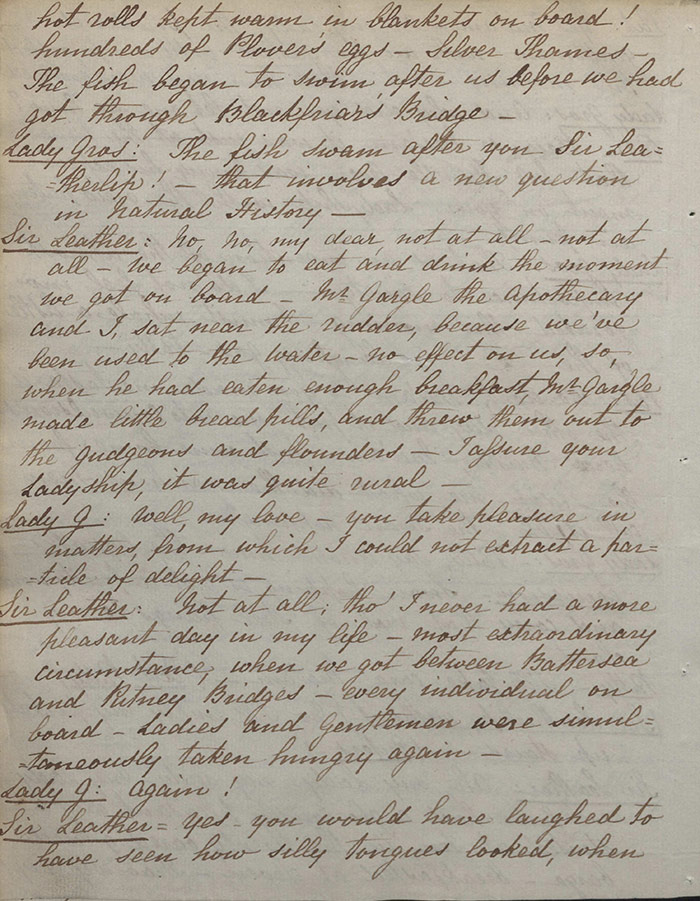 hot rolls kept warm in blankets on board!
hundreds of Plover's eggs – Silver Thames –
The fish began to swim after us before we had
got through Blackfriar's Bridge –
Lady Gros: The fish swam after you Sir Lea=
=therlip! – that involves a new question
in Natural History –
Sir Leather: No, No, my dear, not at all – not at
all – we began to eat and drink the moment
we got on board – Mr Gargle the Apothecary
and I, sat near the rudder, because we've
been used to the water – no effect on us, so,
when he had eaten enough breakfast, Mr Gargle
made little bread pills, and threw them out to
the gudgeons and flounders – I assure your
Ladyship, it was quite rural –
Lady G: Well, my love – you take pleasure in
matters, from which I could not extract a par=
=ticle of delight –
Sir Leather: Not at all; tho' I never had a more
pleasant day in my life – most extraordinary
circumstance, when we got between Battersea
and Putney Bridges – every individual on
board – Ladies and Gentlemen were simul=
=taneously taken hungry again –
Lady G: Again!
Sir Leather = Yes – you would have laughed to
have seen how silly tongues looked, when